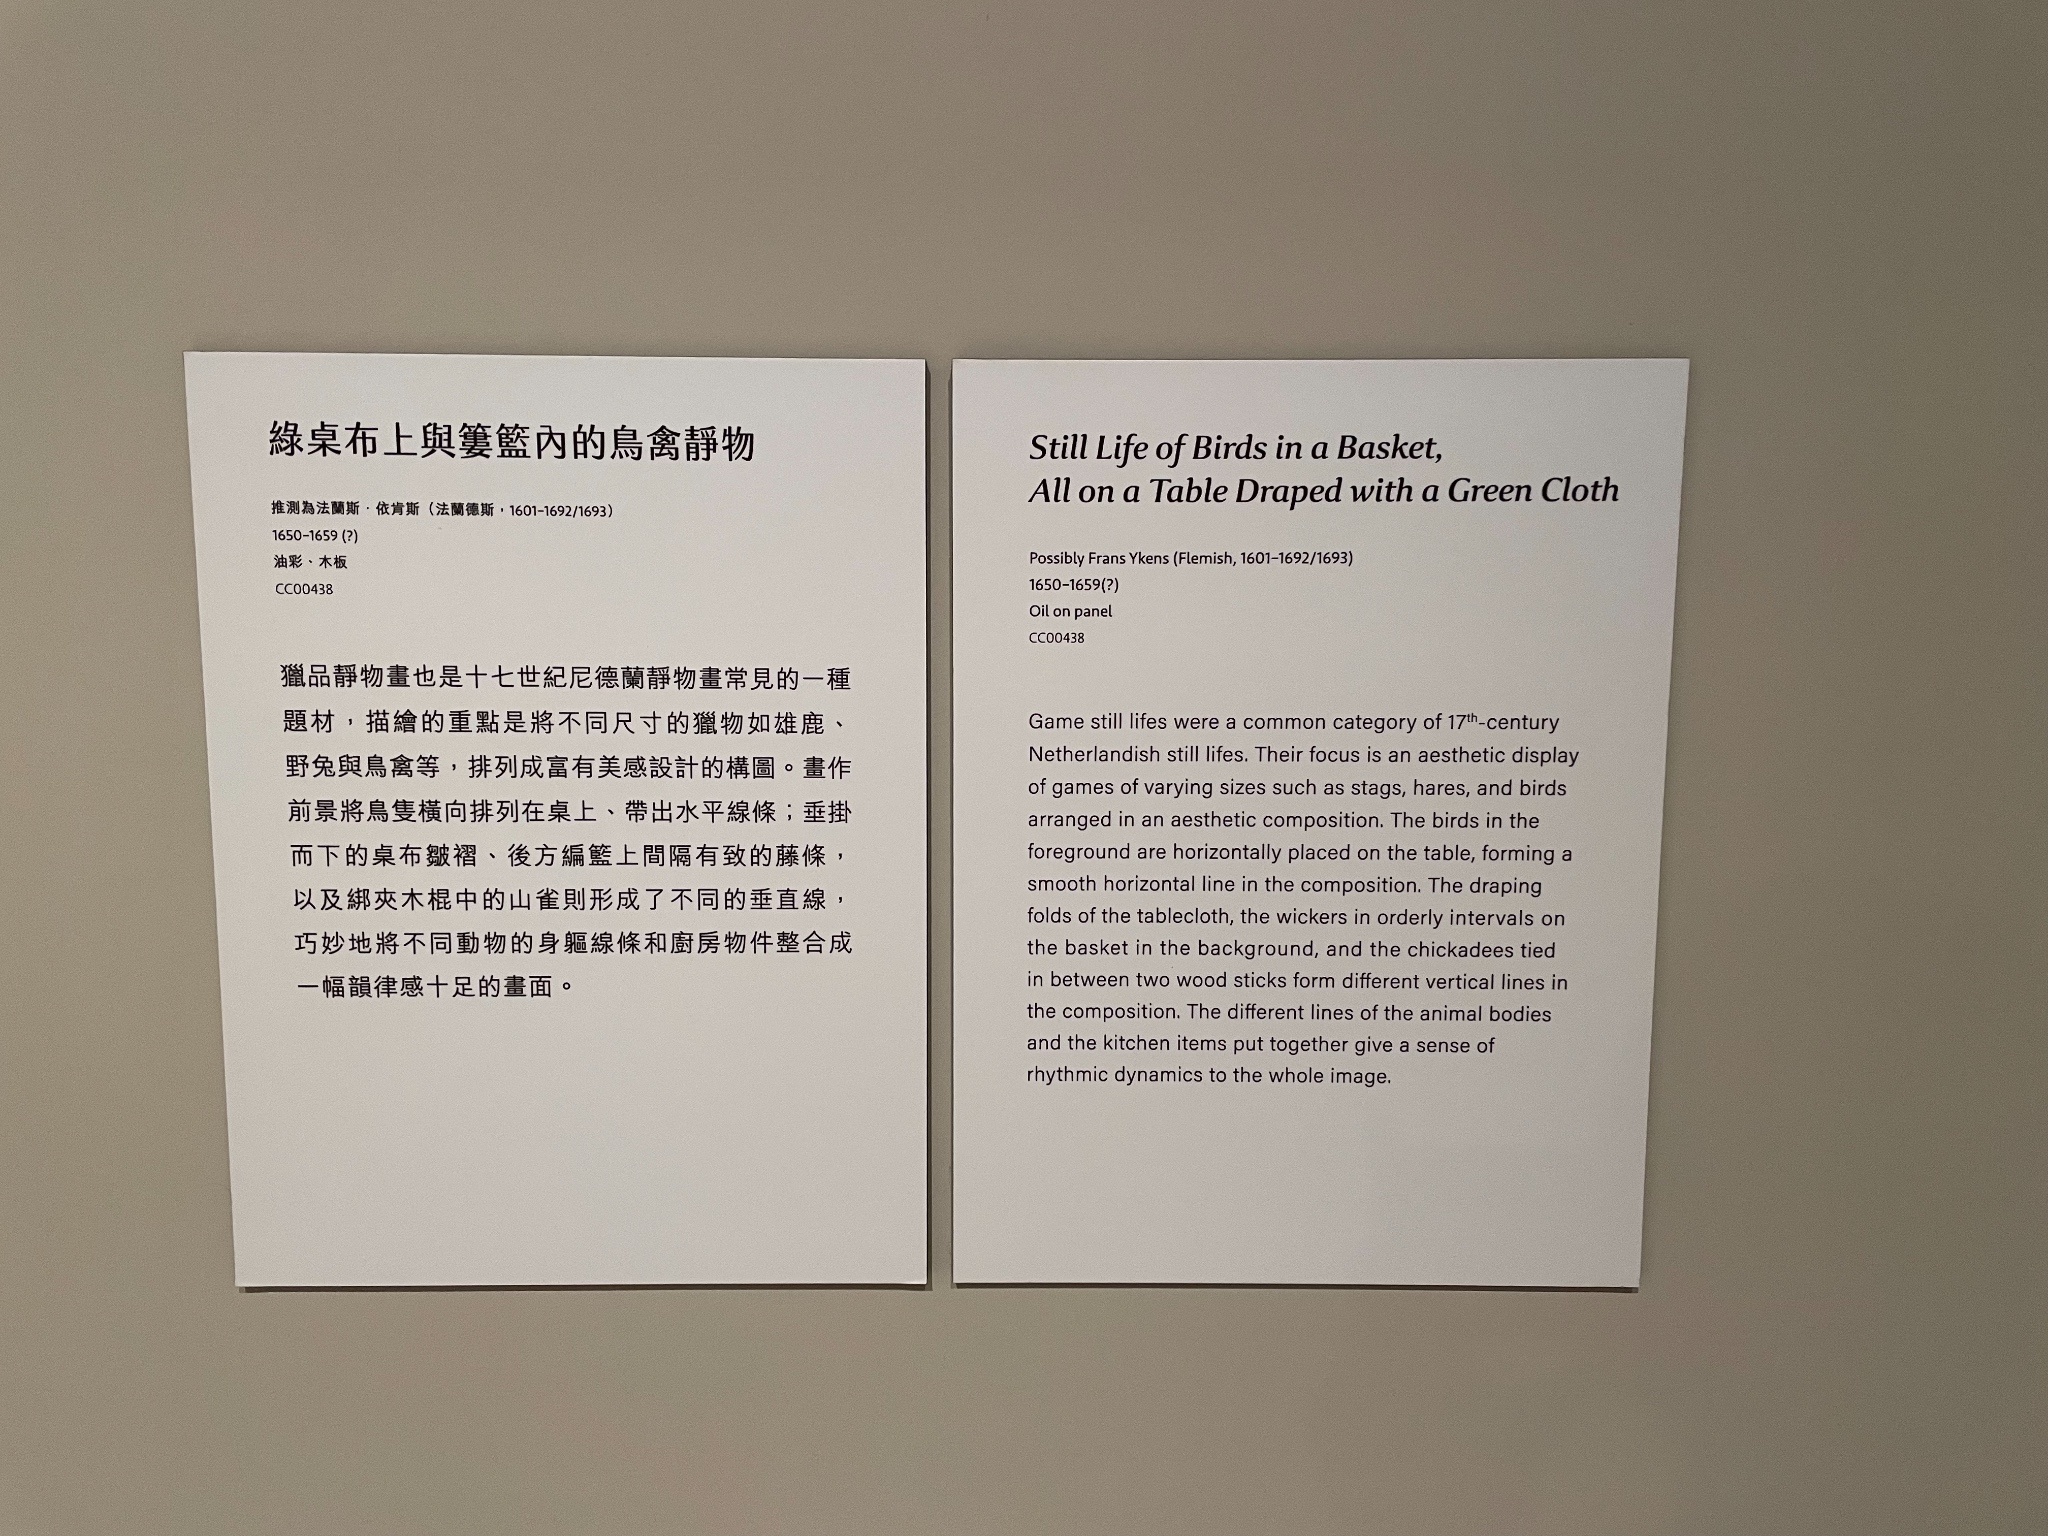 綠桌布上與簍籃內的鳥禽靜物
推測為法蘭斯·依肯斯（法蘭德斯，1601–1692/1693）
1650–1659 (?)
油彩、木板
CC00438
獵品靜物畫也是十七世紀尼德蘭靜物畫常見的一種
題材，描繪的重點是將不同尺寸的獵物如雄鹿、
野兔與鳥禽等，排列成富有美感設計的構圖。畫作
前景將鳥隻橫向排列在桌上、帶出水平線條；垂掛
而下的桌布皺褶、後方編籃上間隔有致的藤條，
以及綁夾木棍中的山雀則形成了不同的垂直線，
巧妙地將不同動物的身軀線條和廚房物件整合成
一幅韻律感十足的畫面。
Still Life of Birds in a Basket,
All on a Table Draped with a Green Cloth
Possibly Frans Ykens (Flemish, 1601–1692/1693)
1650–1659(?)
Oil on panel
CC00438
Game still lifes were a common category of 17th-century
Netherlandish still lifes. Their focus is an aesthetic display
of games of varying sizes such as stags, hares, and birds
arranged in an aesthetic composition. The birds in the
foreground are horizontally placed on the table, forming a
smooth horizontal line in the composition. The draping
folds of the tablecloth, the wickers in orderly intervals on
the basket in the background, and the chickadees tied
in between two wood sticks form different vertical lines in
the composition. The different lines of the animal bodies
and the kitchen items put together give a sense of
rhythmic dynamics to the whole image.